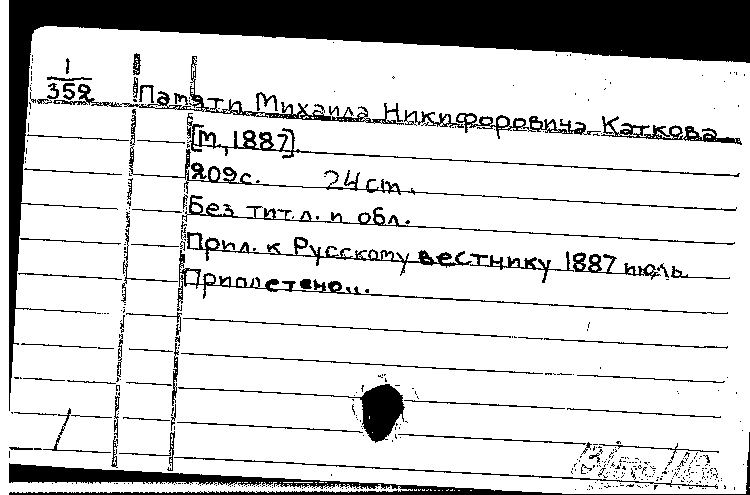 1
352
Памяти Михаила Никифоровича Каткова
[М., 1887].
209с. 24 cm.
Без тит. л. и обл.
Прил. к Русскому вестнику 1887 июль.
Приплетено...